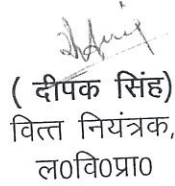 ( दीपक सिंह)
वित्त नियंत्रक,
ल0वि0प्रा0